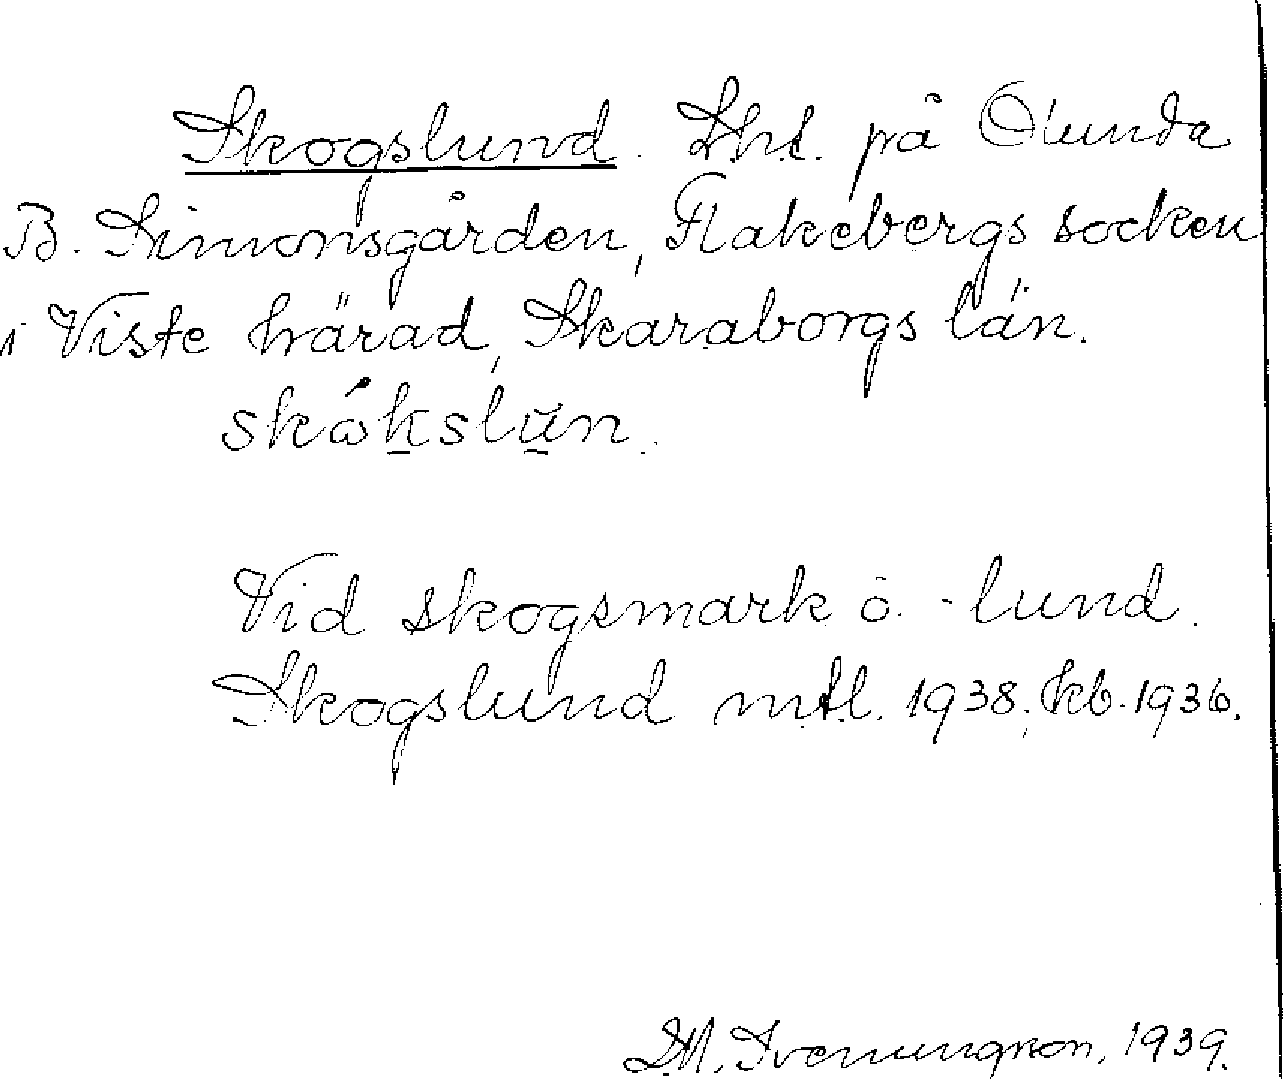 Skogslund. Lht. på Ölunda
B. Simonsgården, Flakebergs socken
i Viste härad, Skaraborgs län.
skókslun.
Vid skogsmark o. -lund.
Skogslund mtl. 1938; kb. 1936.
1939.